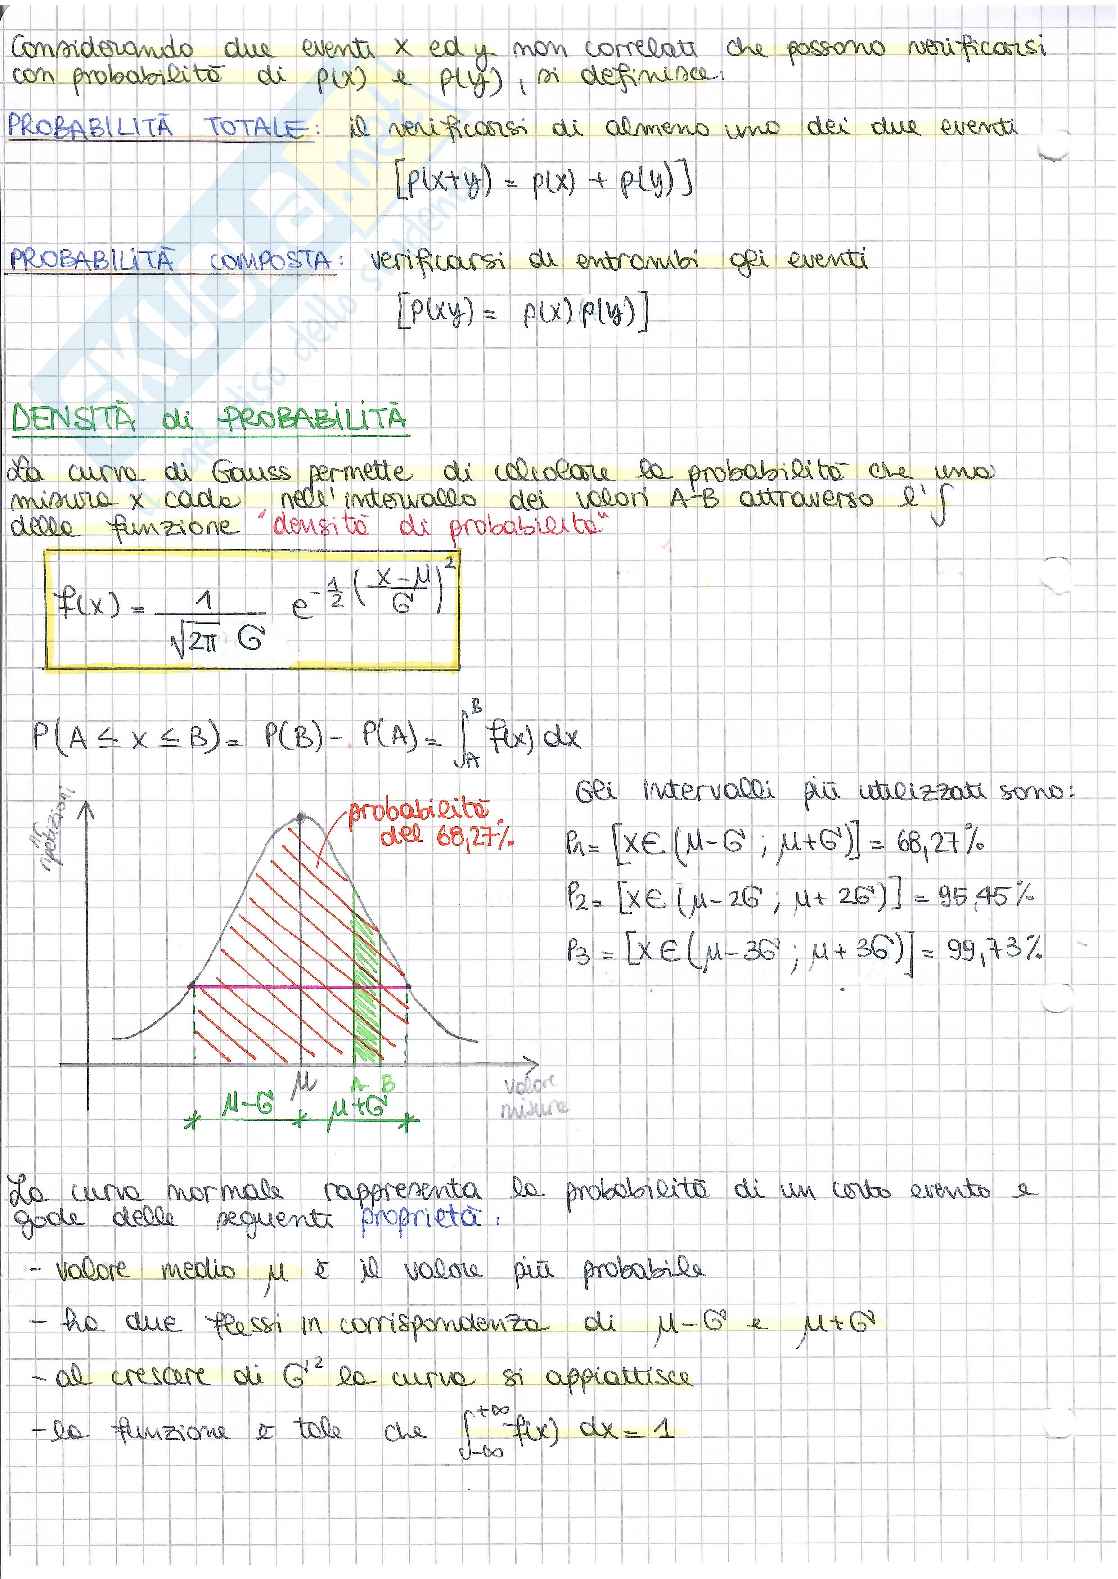 Considerando due eventi x ed y non correlati che possono verificarsi
con probabilità di p(x) e p(y), si definisce:
PROBABILITÀ TOTALE: il verificarsi di almeno uno dei due eventi
[p(x+y) = p(x) + p(y)]
PROBABILITÀ COMPOSTA: verificarsi di entrambi gli eventi
[p(xy) = p(x) p(y)]
DENSITÀ di PROBABILITÀ
La curva di Gauss permette di calcolare la probabilità che una
misura x cada nell'intervallo dei valori A-B attraverso l'∫
della funzione "densità di probabilità"
f(x) = 1/(√2π σ) e^(-1/2 ((x-μ)/σ)^2)
P(A ≤ x ≤ B) = P(B) - P(A) = ∫_A^B f(x) dx
n° ripetizioni
probabilità
del 68,27%
Gli intervalli più utilizzati sono:
P1 = [x∈(μ-σ ; μ+σ)] = 68,27%
P2 = [x∈(μ-2σ ; μ+2σ)] = 95,45%
P3 = [x∈(μ-3σ ; μ+3σ)] = 99,73%
μ A B
μ-σ μ+σ
valore
misura
La curva normale rappresenta la probabilità di un certo evento e
gode delle seguenti proprietà:
- valore medio μ è il valore più probabile
- ha due flessi in corrispondenza di μ-σ e μ+σ
- al crescere di σ² la curva si appiattisce
- la funzione è tale che ∫_-∞^+∞ f(x) dx = 1
SKUOLA.net